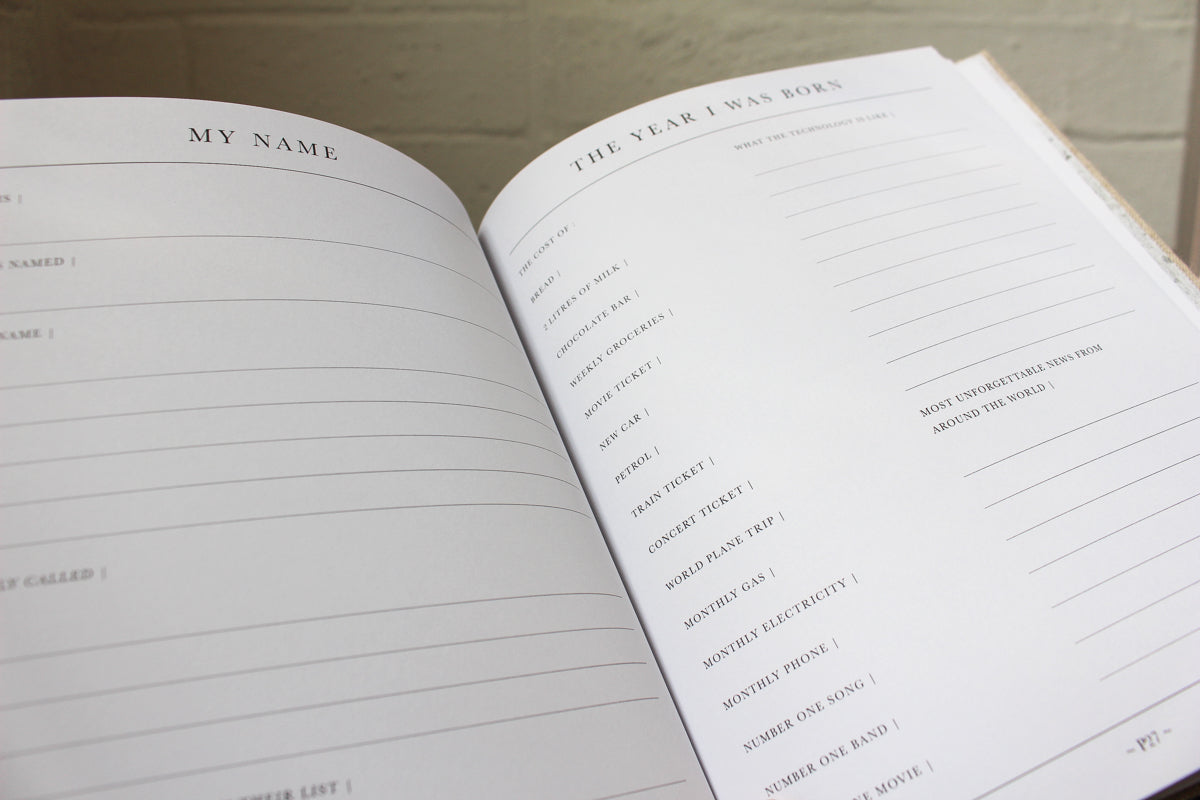 MY NAME
IS |
NAMED |
NAME |
CALLED |
THEIR LIST |
THE YEAR I WAS BORN
THE COST OF :
BREAD |
2 LITRES OF MILK |
CHOCOLATE BAR |
WEEKLY GROCERIES |
MOVIE TICKET |
NEW CAR |
PETROL |
TRAIN TICKET |
CONCERT TICKET |
WORLD PLANE TRIP |
MONTHLY GAS |
MONTHLY ELECTRICITY |
MONTHLY PHONE |
NUMBER ONE SONG |
NUMBER ONE BAND |
NE MOVIE |
WHAT THE TECHNOLOGY IS LIKE |
MOST UNFORGETTABLE NEWS FROM
AROUND THE WORLD |
~ P27 ~